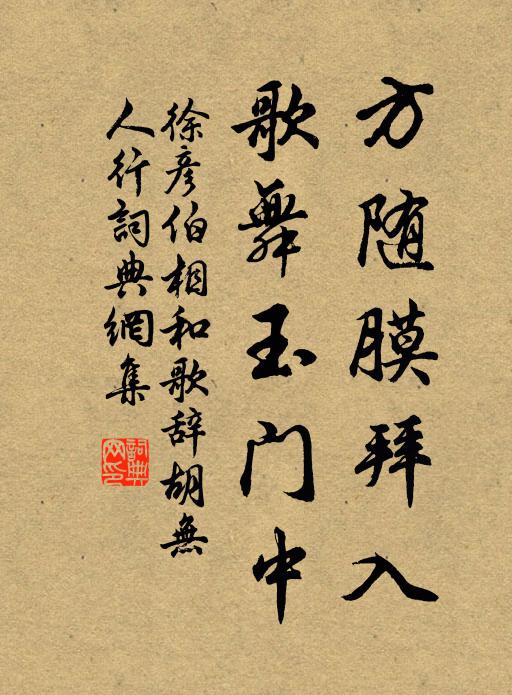 方随膜拜入
歌舞玉门中
徐彦伯相和歌辞胡無
人行詞典網集
詞典
网印